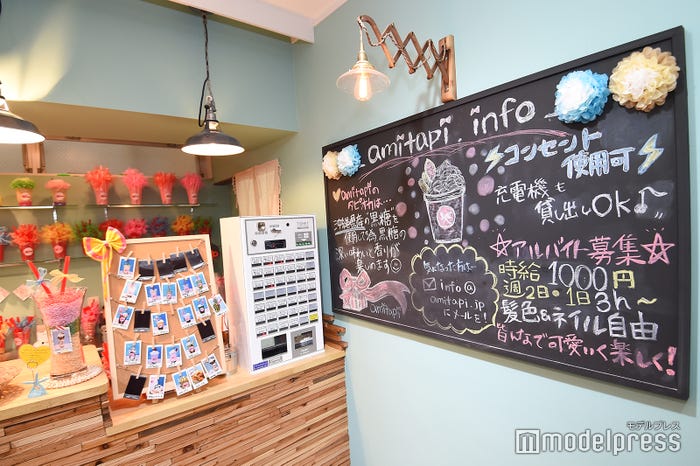 amitapi info
コンセント
使用可
充電機も
貸し出しOK♪
♥amitapiの
タピオカは…
沖縄県産の黒糖を
使用して為黒糖の
深い味わいと香りが
楽しめます☺
amitapi
info@
amitapi.jp
にメールを!
☆アルバイト募集☆
時給 1000円
週2日・1日3h〜
髪色&ネイル自由
皆んなで可愛いく楽しく!
モデルプレス
modelpress